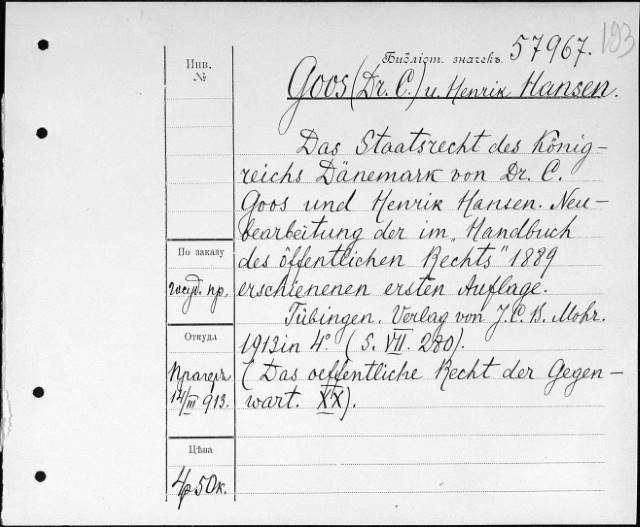 193
Библіот. значекъ 57967.
Goos (Dr. C.) u. Henrik Hansen.
Инв.
№
Das Staatsrecht des König-
reichs Dänemark von Dr. C.
Goos und Henrik Hansen. Neu-
bearbeitung der im „Handbuch
des öffentlichen Rechts" 1889
erschienenen ersten Auflage.
Tübingen. Verlag von J. C. B. Mohr.
1913 in 4°. (S. VII. 280).
(Das oeffentliche Recht der Gegen-
wart. XX).
По заказу
госуд. пр.
Откуда
Прагеръ
12/III 913.
Цѣна
4р 50к.